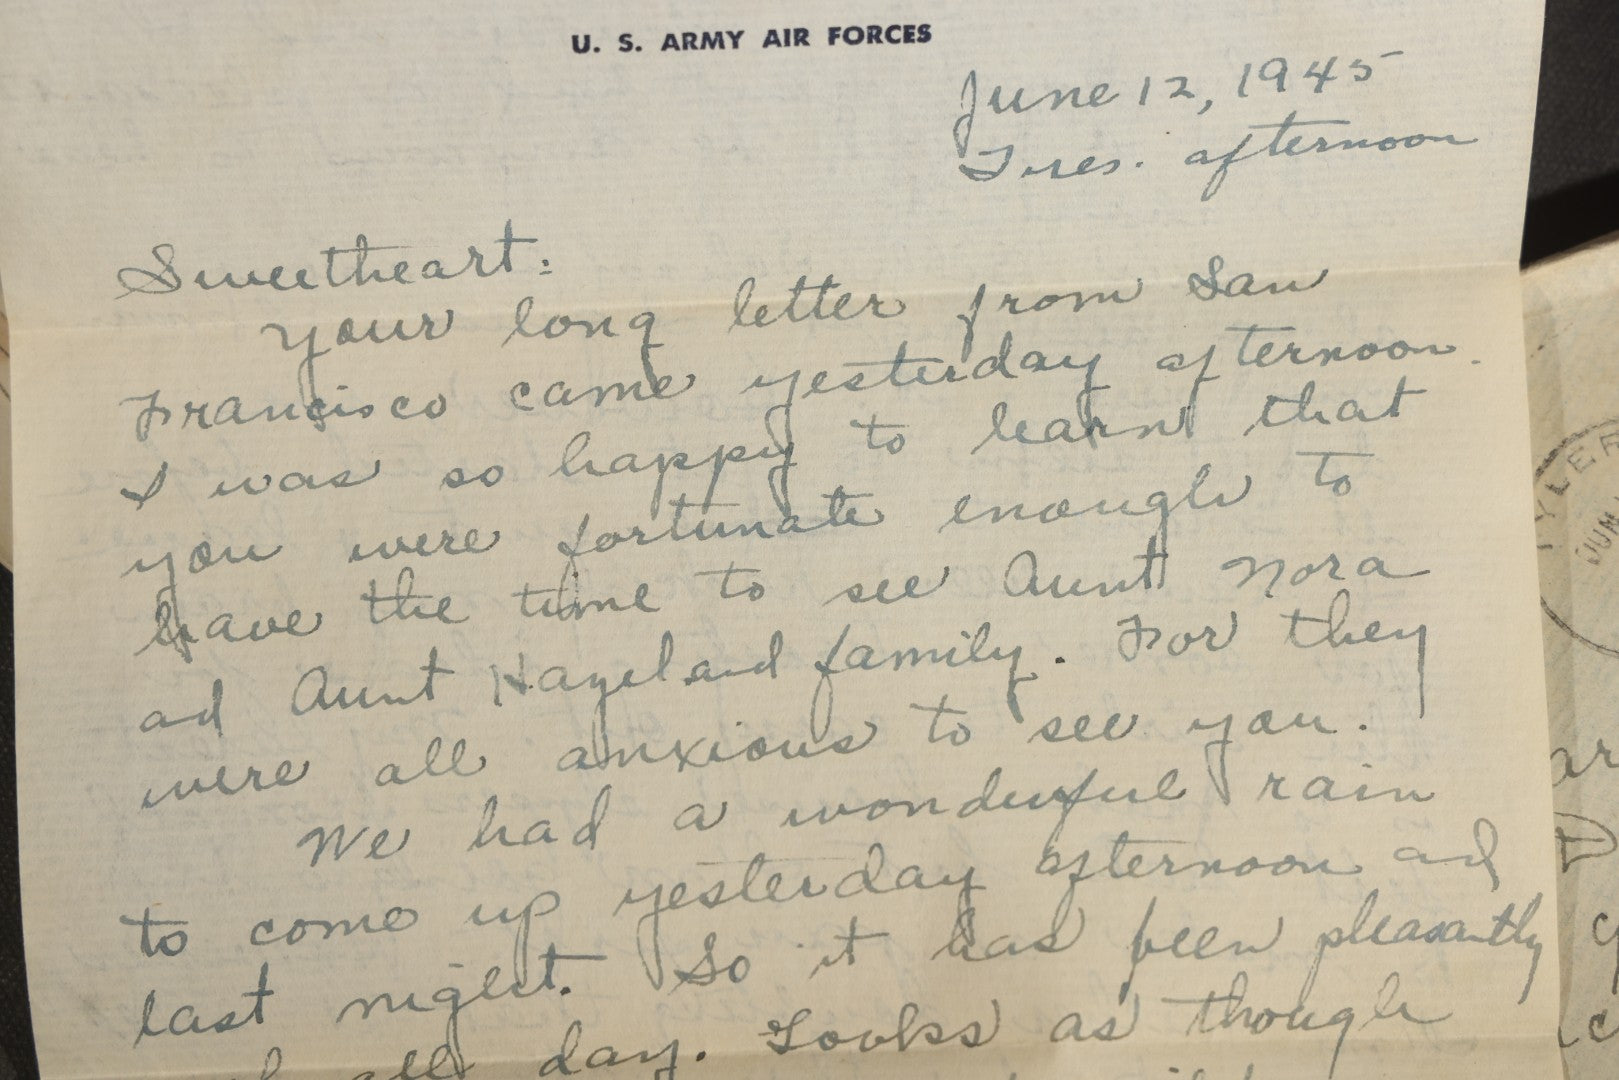 U. S. ARMY AIR FORCES
June 12, 1945
Tues. afternoon
Sweetheart:
Your long letter from San
Francisco came yesterday afternoon.
I was so happy to learn that
you were fortunate enough to
have the time to see Aunt Nora
ad Aunt Hazel and family. For they
were all anxious to see you.
We had a wonderful rain
to come up yesterday afternoon ad
last night. So it has been pleasantly
all day. Looks as though
TYLER
JUN